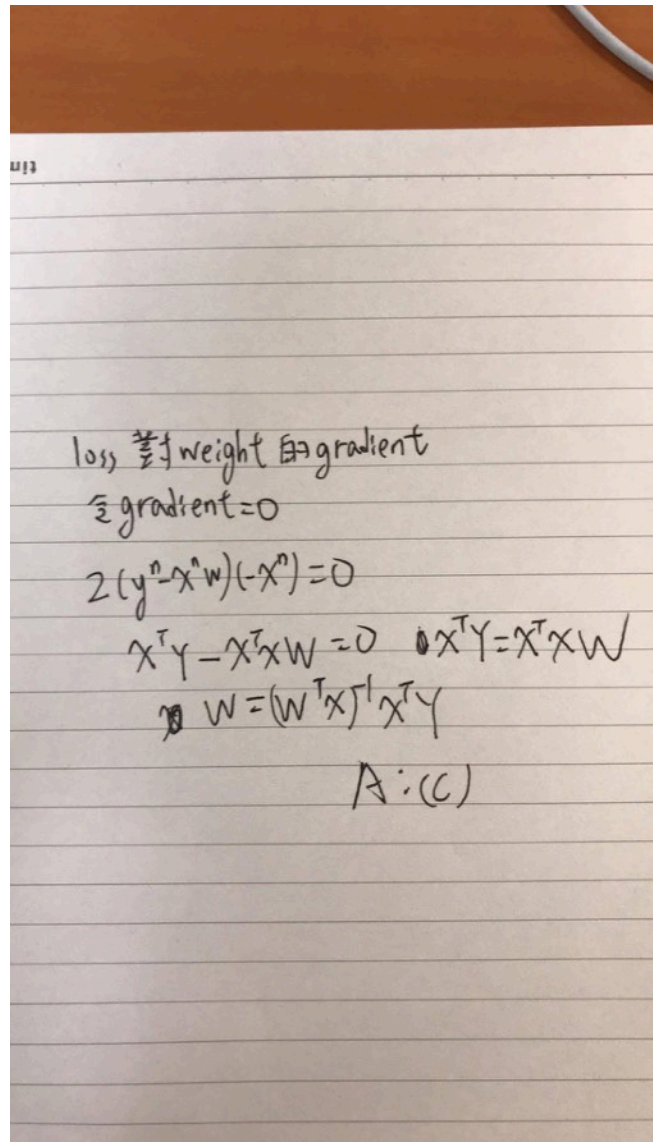 loss 對 weight 的 gradient
令 gradient=0
2(yⁿ-xⁿw)(-xⁿ)=0
XᵀY-XᵀXW=0 XᵀY=XᵀXW
W=(WᵀX)⁻¹XᵀY
A:(C)